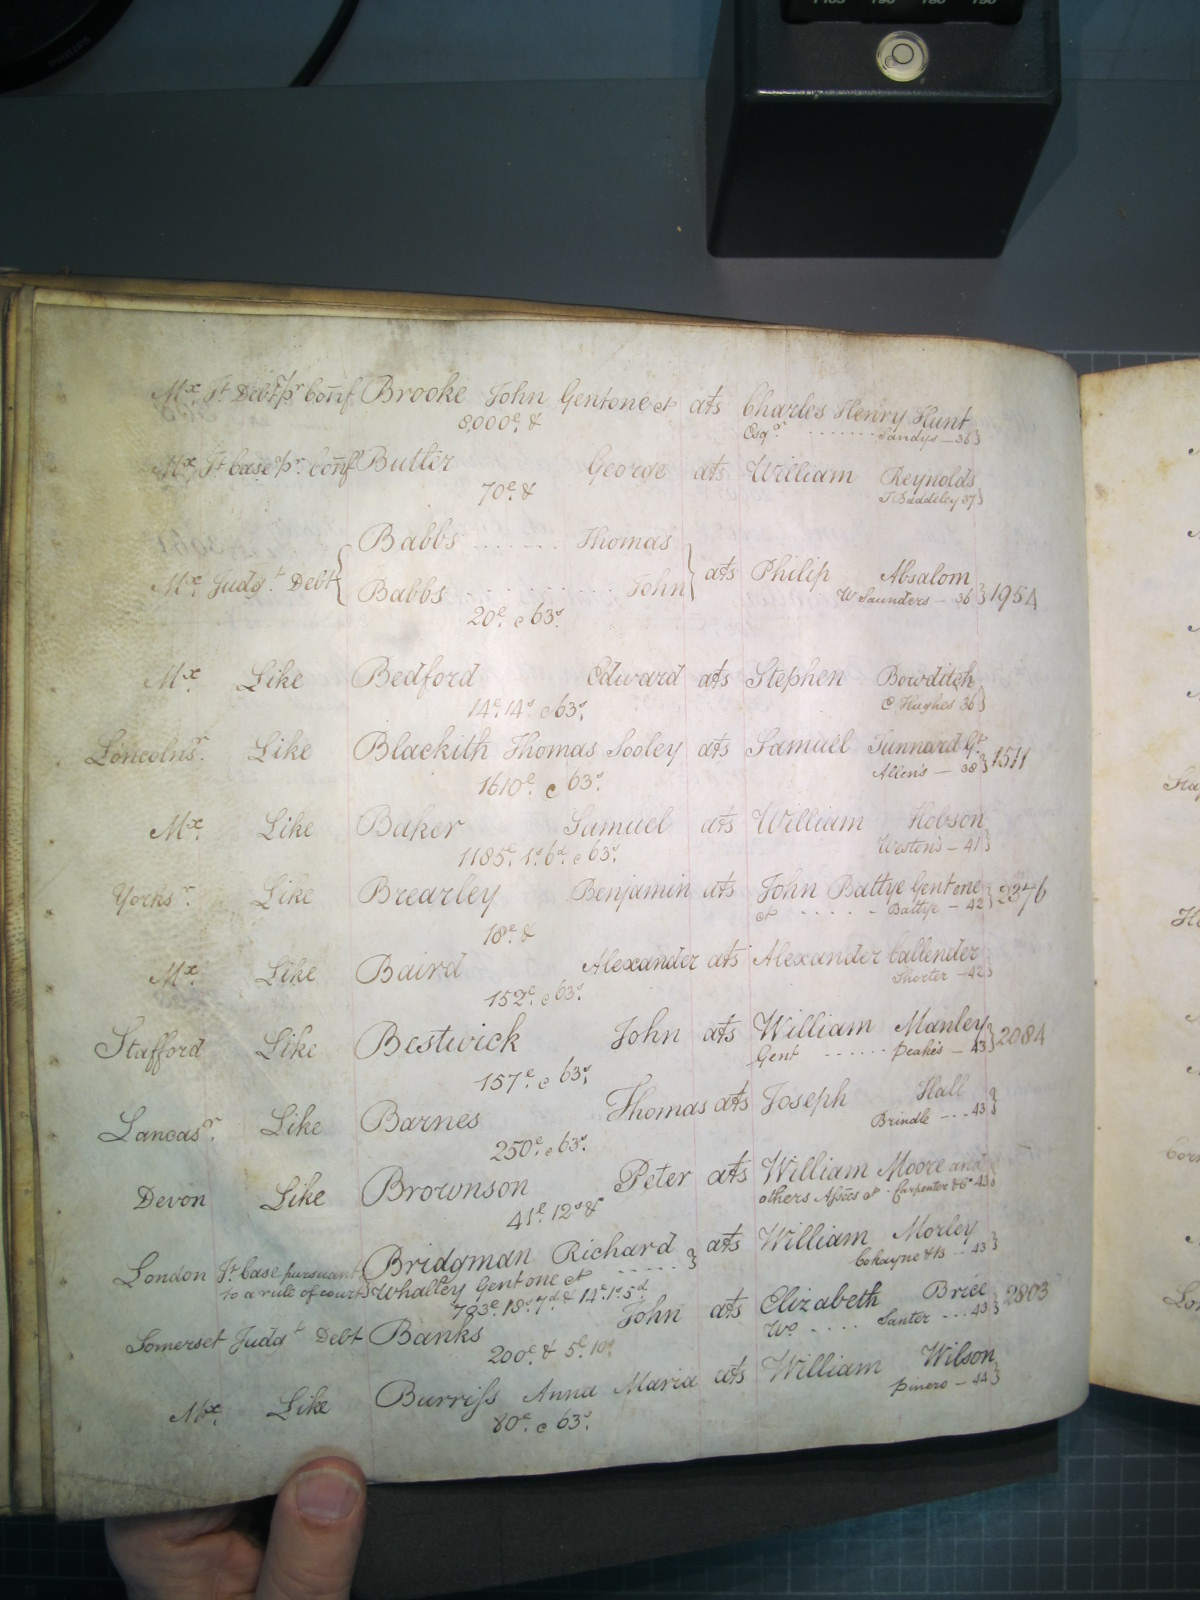 PHILIPS
Mx Jt Debt pr Conf Brooke John Gent one et ats Charles Henry Hunt
8,000£ & Esqr ....... Sandys - 36}
Mx Jt Case pr Conf Butter George ats William Reynolds
70£ & T Baddeley 37}
Babbs ....... Thomas
Mx Judgt Debt { Babbs .......... John } ats Philip Absalom
20£ c 63s W Saunders - 36 } 1954
Mx Like Bedford Edward ats Stephen Bowditch
14£ 14s c 63s C Hughes 36}
Loncolnsr Like Blackith Thomas Sooley ats Samuel Tunnard Gt
1610£ c 63s Allen's - 38} 1511
Mx Like Baker Samuel ats William Hobson
1185£ 1s 6d c 63s Weston's - 41}
Yorksr Like Brearley Benjamin ats John Battye Gent one
18£ & et ..... Battye - 42} 2376
Mx Like Baird Alexander ats Alexander Callender
152£ c 63s Shorter - 42}
Stafford Like Bestwick John ats William Manley
157£ c 63s Gent ...... Peake's - 43} 2084
Lancasr Like Barnes Thomas ats Joseph Hall
250£ c 63s Brindle - .. 43}
Devon Like Brownson Peter ats William Moore and
41£ 12s & others Assees et . Carpenter & Co 43}
London Jt Case pursuant to a rule of court Bridgman Richard ats William Morley
Whalley Gent one et ...... Cokayne & ts .. 43}
793£ 18s 7d & 14£ 1s 5d
Somerset Judgt Debt Banks John ats Elizabeth Brice
200£ & 5£ 10s Wo .... Santer ... 43} 2803
Mx Like Burriss Anna Maria ats William Wilson
80£ c 63s Pinero - 44}